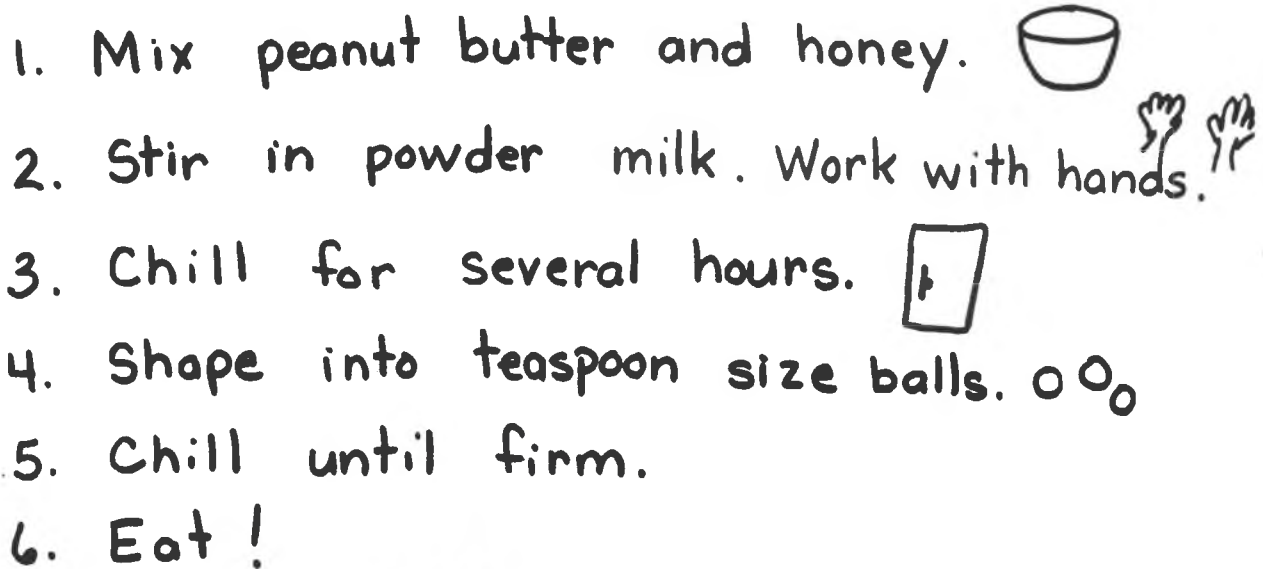 1. Mix peanut butter and honey.
2. Stir in powder milk. Work with hands.
3. Chill for several hours.
4. Shape into teaspoon size balls.
5. Chill until firm.
6. Eat!